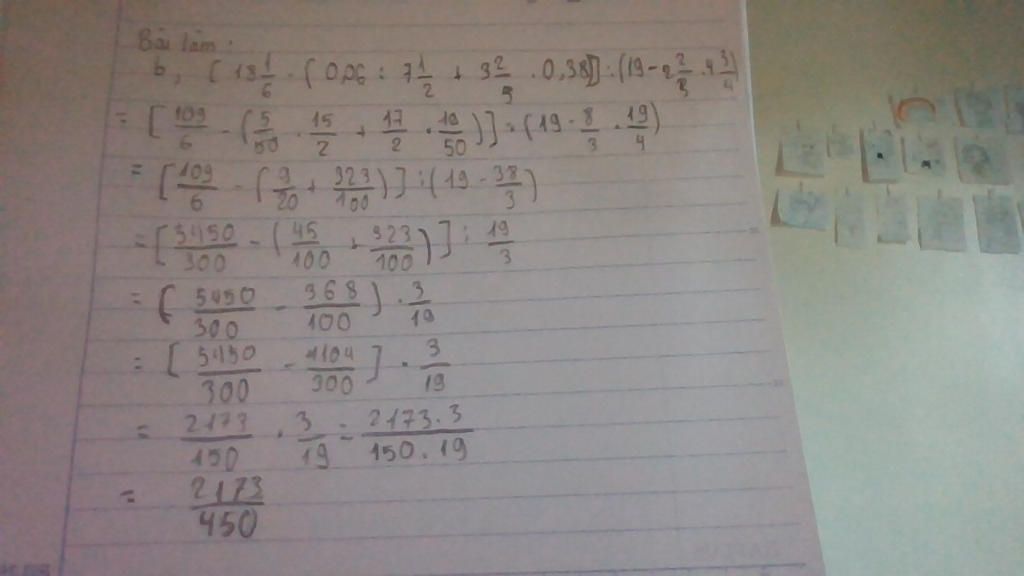 Bài làm:
b, [18 1/6 - (0,06 : 7 1/2 + 3 2/5 . 0,38)] : (19 - 2 2/3 . 4 3/4)
= [109/6 - (5/50 . 15/2 + 17/2 . 19/50)] : (19 - 8/3 . 19/4)
= [109/6 - (9/20 + 323/100)] : (19 - 38/3)
= [5450/300 - (45/100 + 323/100)] : 19/3
= (5450/300 - 368/100) . 3/19
= [5450/300 - 1104/300] . 3/19
= 2173/150 . 3/19 = 2173.3/150.19
= 2173/450